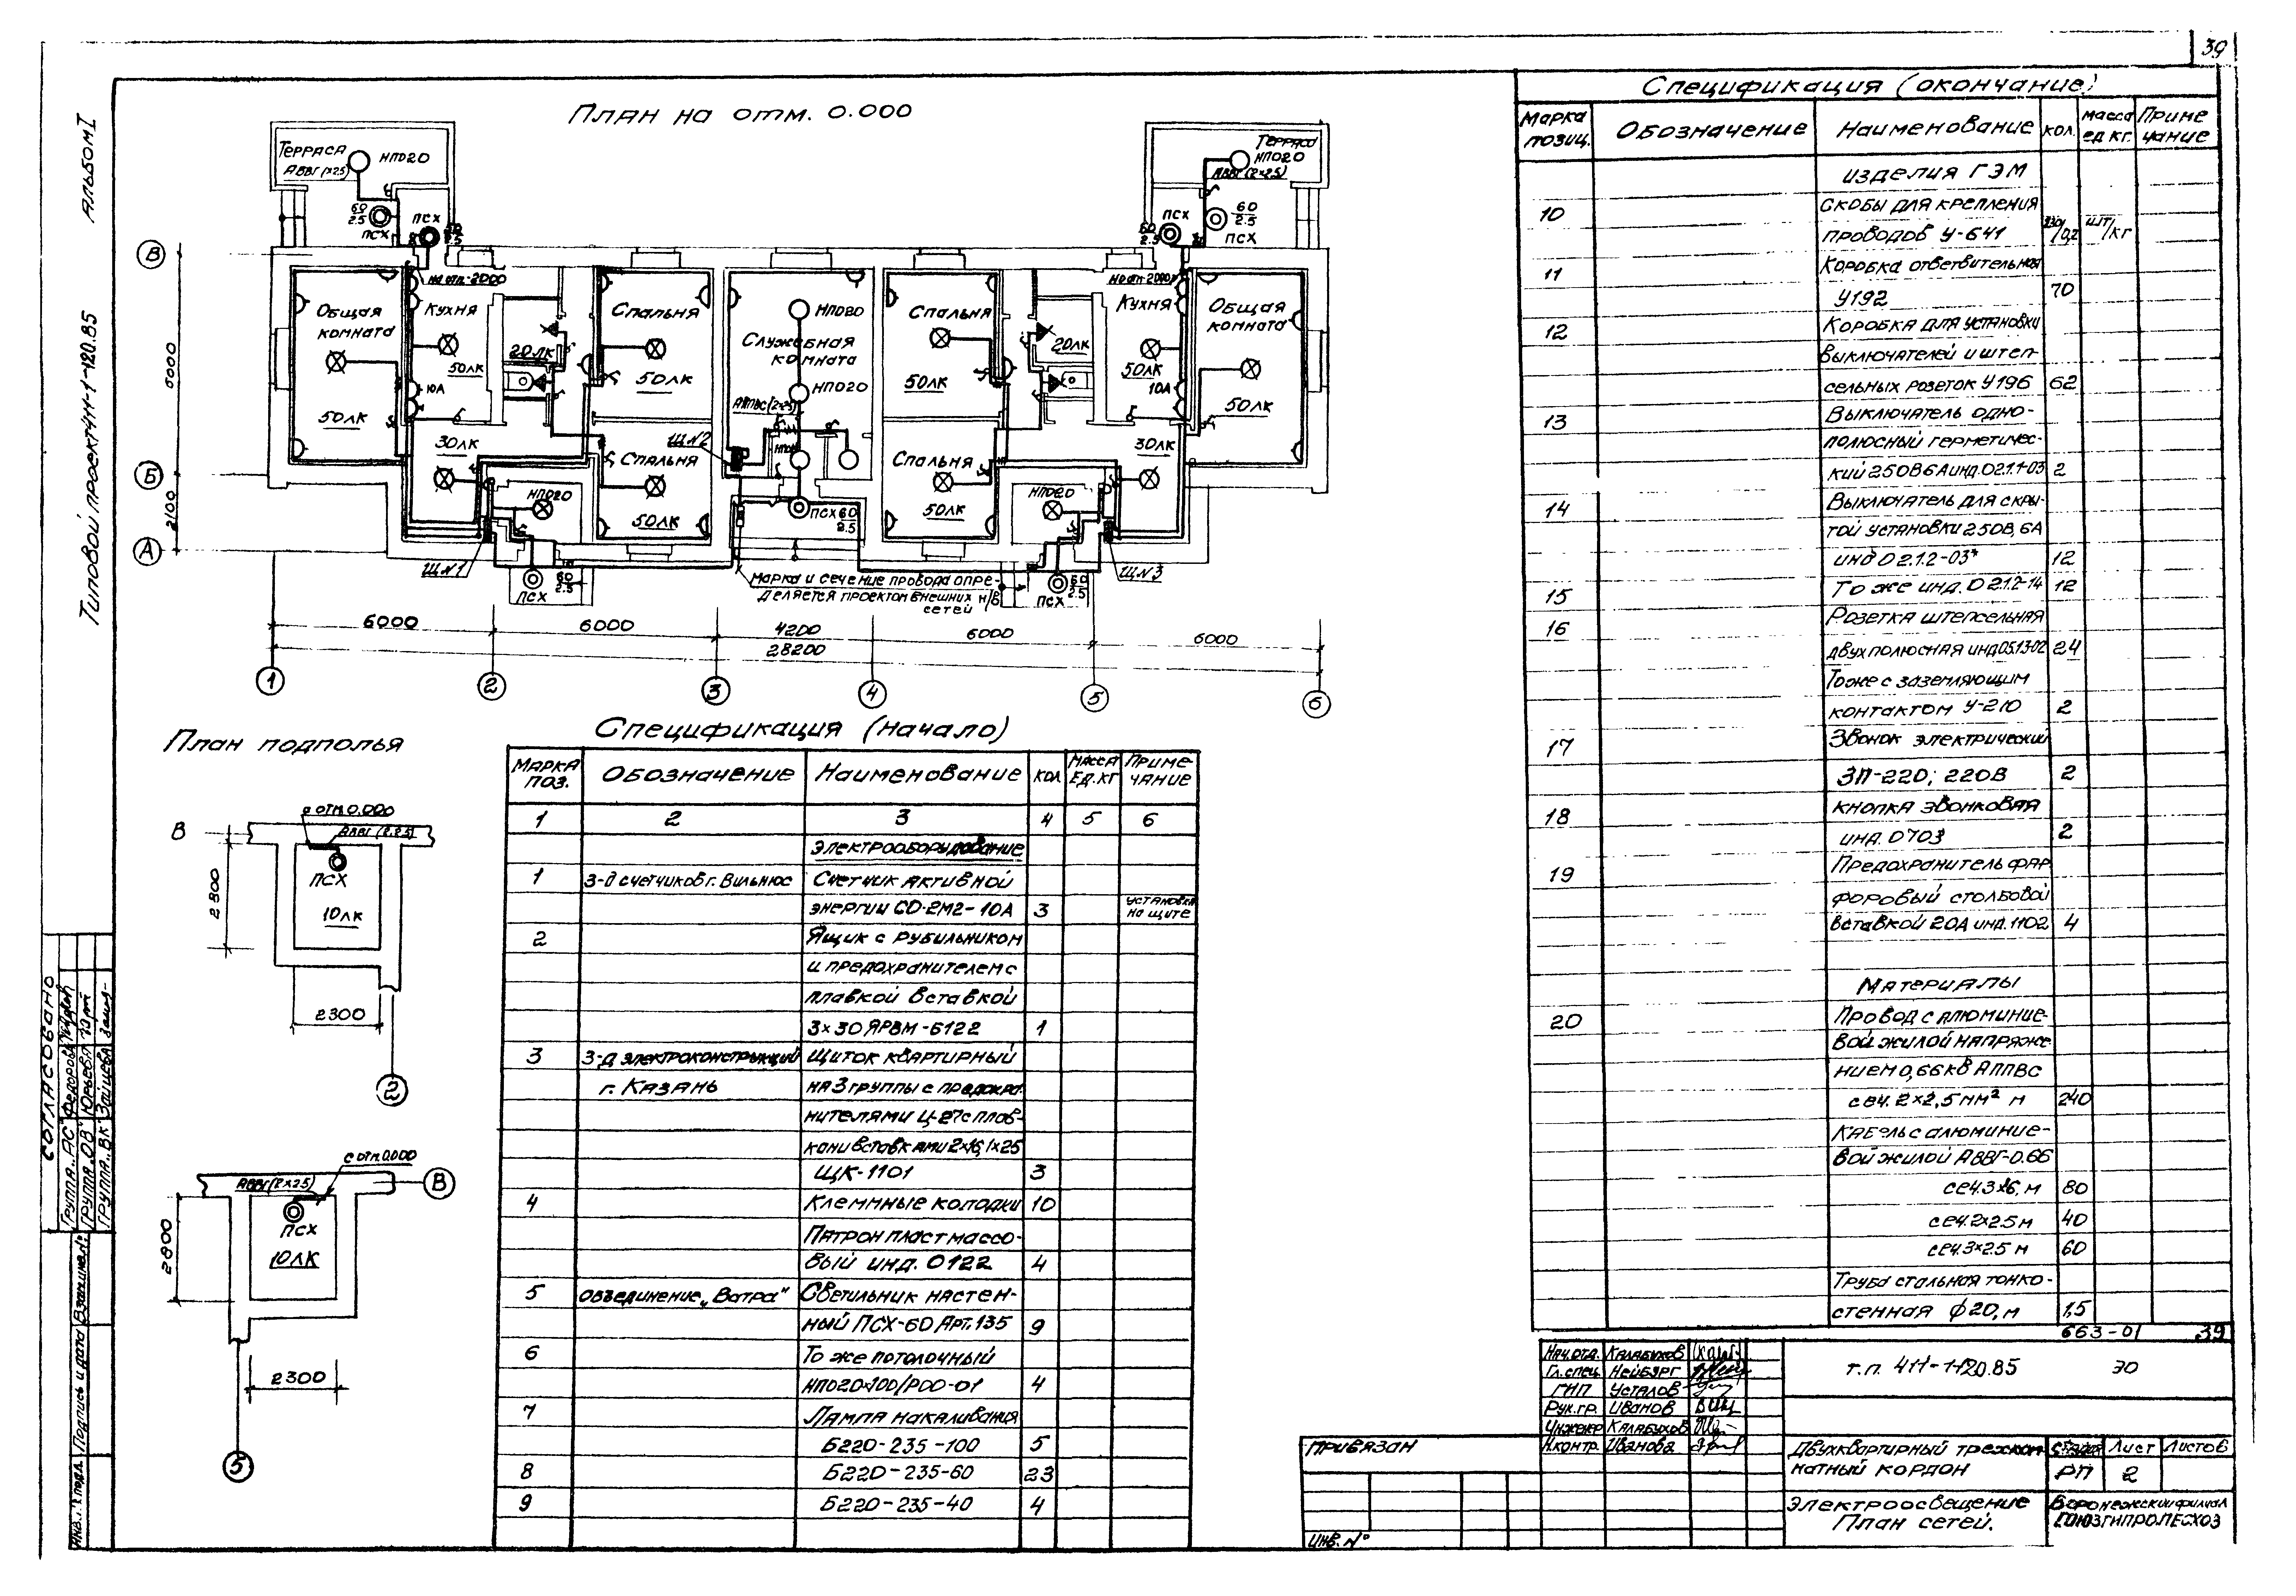 39
Альбом I
Типовой проект 411-1-120.85
План на отм. 0.000
Терраса
НПО20
АВВГ(2×2.5)
60
2.5
ПСХ
ПСХ
60
2.5
на отм.-2.000
Общая
комната
50лк
Кухня
50лк
10А
20лк
30лк
Спальня
50лк
Спальня
50лк
НПО20
Служебная
комната
НПО20
НПО20
АППВС(2×2.5)
Щ№2
ПСХ 60
2.5
Спальня
50лк
Спальня
50лк
20лк
Кухня
50лк
10А
30лк
НПО20
Общая
комната
50лк
Терраса
НПО20
АВВГ(2×2.5)
ПСХ
60
2.5
ПСХ
60
2.5
на отм.-2.000
Щ№1
ПСХ
60
2.5
Щ№3
ПСХ
60
2.5
Марка и сечение провода опре-
деляется проектом внешних н/в
сетей
В
Б
А
6000
2100
6000
6000
4200
6000
6000
28200
1
2
3
4
5
6
План подполья
с отм.0.000
АВВГ(2×2.5)
В
ПСХ
10лк
2800
2300
2
с отм.0.000
АВВГ(2×2.5)
В
ПСХ
10лк
2800
2300
5
Спецификация (начало)
Марка поз. Обозначение Наименование кол Масса ед.кг Приме-чание
1 2 3 4 5 6
Электрооборудование
1 З-д счетчиков г. Вильнюс Счетчик активной
энергии СО-2М2-10А 3 установка на щите
2 Ящик с рубильником
и предохранителем с
плавкой вставкой
3×30 ЯРВМ-6122 1
3 З-д электроконструкций Щиток квартирный
г. Казань на 3 группы с предохра-
нителями Ц-27 с плав-
кими вставками 2×16, 1×25
ЩК-1101 3
4 Клеммные колодки 10
Патрон пластмассо-
вый инд. 0122 4
5 Объединение „Ватра" Светильник настен-
ный ПСХ-60 Арт.135 9
6 То же потолочный
НПО20×100/РОО-01 4
7 Лампа накаливания
Б220-235-100 5
8 Б220-235-60 23
9 Б220-235-40 4
Спецификация (окончание)
Марка позиц. Обозначение Наименование кол. масса ед кг. Приме чание
изделия ГЭМ
10 скобы для крепления
проводов У-641 /0,2 шт/кг
11 Коробка ответвительная
У192 70
12 Коробка для установки
выключателей и штеп-
сельных розеток У196 62
13 Выключатель одно-
полюсный герметичес-
кий 250В 6А инд.0.2.1.1-03 2
14 Выключатель для скры-
той установки 250В, 6А
инд 0 2.1.2-03* 12
15 То же инд. 0 2.1.2-14 12
16 Розетка штепсельная
двухполюсная инд 05.13-02 24
То же с заземляющим
контактом У-210 2
17 Звонок электрический
ЗП-220; 220В 2
18 кнопка звонковая
инд. 0703 2
19 Предохранитель фар
форовый столбовой
вставкой 20А инд. 1102 4
Материалы
20 Провод с алюминие-
вой жилой напряже-
нием 0,66кВ АППВС
сеч. 2×2,5 мм² м 240
Кабель с алюминие-
вой жилой АВВГ-0.66
сеч.3×6, м 80
сеч.2×2.5 м 40
сеч.3×2.5 м 60
Труба стальная тонко-
стенная ф20, м 1,5
663-01 39
Нач.отд. Калабухов
Гл.спец. Нейбург
ГИП Усталов
Рук.гр. Иванов
Инженер Калабухов
Н.контр. Иванова
т.п. 411-1-120.85 ЭО
Двухквартирный трехком
натный кордон
Стадия Лист Листов
РП 2
Электроосвещение
План сетей.
Воронежский филиал
СОЮЗГИПРОЛЕСХОЗ
Привязан
Инв.№
Согласовано
Группа „АС" Федорова
Группа „ОВ" Юрьева
Группа „ВК" Зайцева
Взам.инв.№
Подпись и дата
Инв.№ подл.